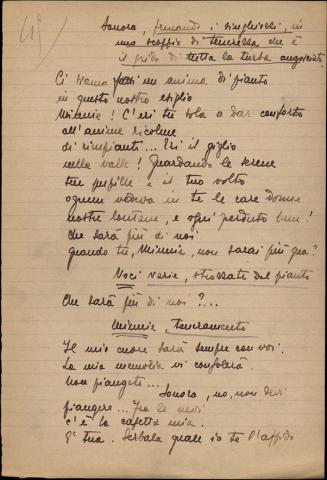 Sonora, frenando i singhiozzi, in
uno scoppio di tenerezza che è
il grido di tutta la turba angosciata.
Ci siamo fatti un anima di pianto
in questo nostro esiglio
Minnie! C'eri tu sola a dar conforto
all'anime ricolme
di rimpianti... Eri il giglio
nella valle! Guardando le serene
tue pupille e il tuo volto
ognun vedeva in te le care donne
nostre lontane, e ogni perduto bene!
Che sarà più di noi
quando tu, Minnie, non sarai più qua?
Voci varie, strozzate dal pianto
Che sarà più di noi?...
Minnie, teneramente
Il mio cuore sarà sempre con voi.
La mia memoria vi consolerà.
Non piangete...
Sonora, no, non devi
piangere... Fra le nevi
c'è la casetta mia.
E' tua. Serbala quale io te l'affido